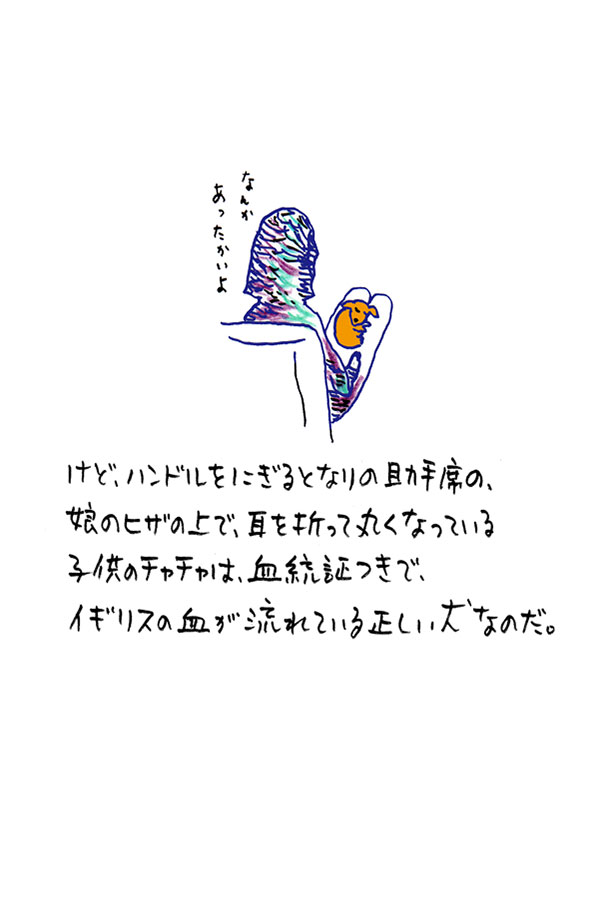 なんか
あったかいよ
けど、ハンドルをにぎるとなりの助手席の、
娘のヒザの上で、耳を折って丸くなっている
子供のチャチャは、血統証つきで、
イギリスの血が流れている正しい犬なのだ。